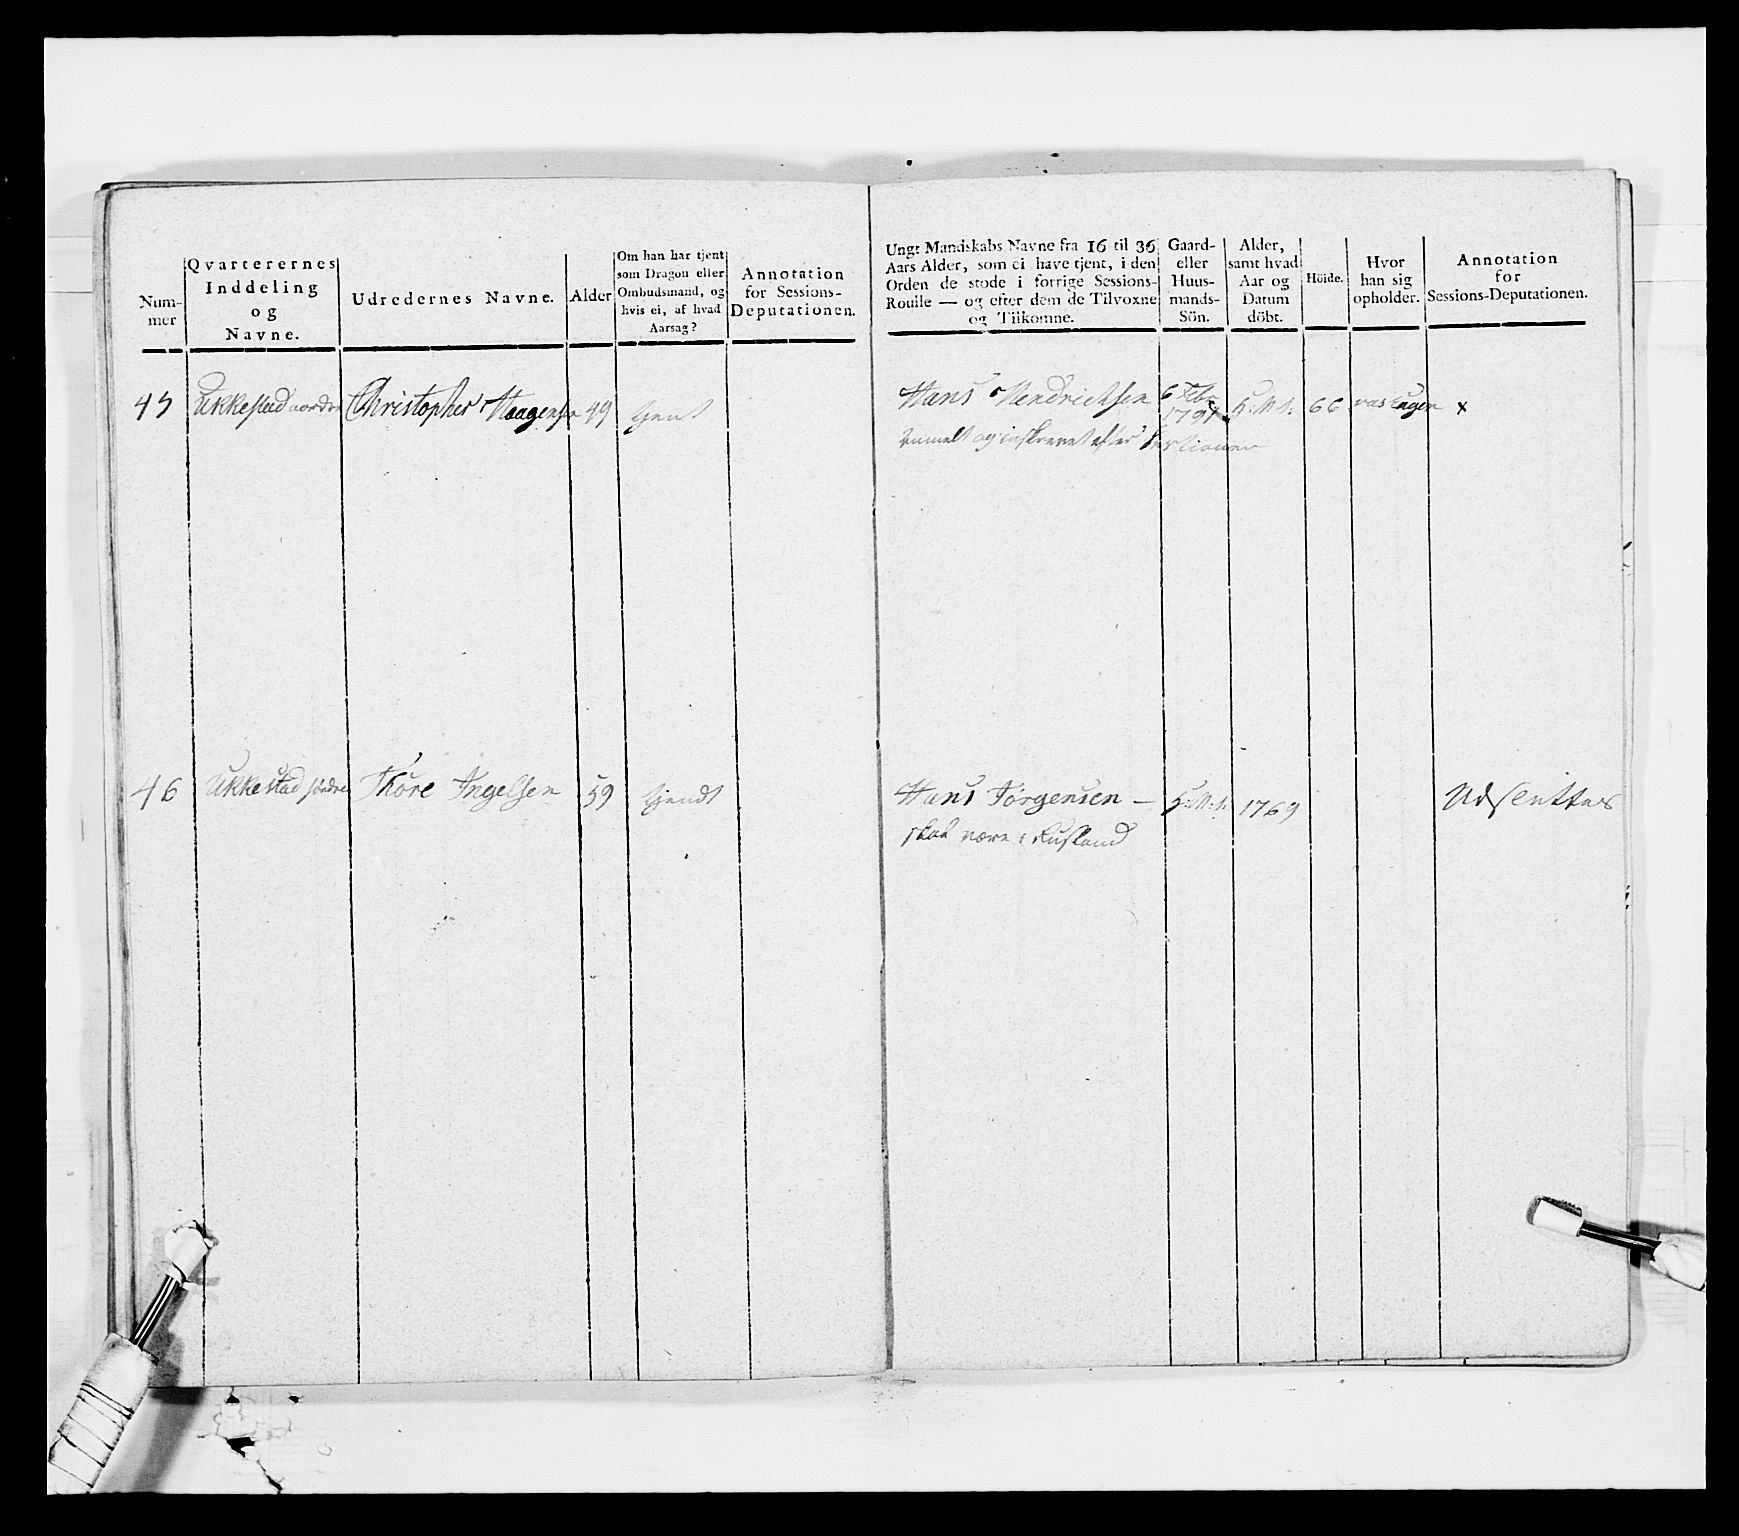 Num-
mer
Qvarterernes
Inddeling
og
Navne.
Udredernes Navne.
Alder
Om han har tjent
som Dragon eller
Ombudsmand, og
hvis ei, af hvad
Aarsag?
Annotation
for Sessions-
Deputationen.
45 Ukkestad nordre Christopher Haagensen 49 tjent
46 Ukkestad søndre Thore Ingelsen 59 tjendt
Ungt Mandskabs Navne fra 16 til 36
Aars Alder, som ei have tjent, i den
Orden de stode i forrige Sessions-
Roulle — og efter dem de Tilvoxne
og Tilkomne.
Gaard-
eller
Huus-
mands-
Sön.
Alder,
samt hvad
Aar og
Datum
döbt.
Höide.
Hvor
han sig
opholder.
Annotation
for
Sessions-Deputationen.
Hans Hendrichsen 6 Febr
1791 H:M:S: 66 x
og inskrevet efter Sessionen
Hans Jørgensen — H:M:S: 1769 Udslettes
skal være i Rusland